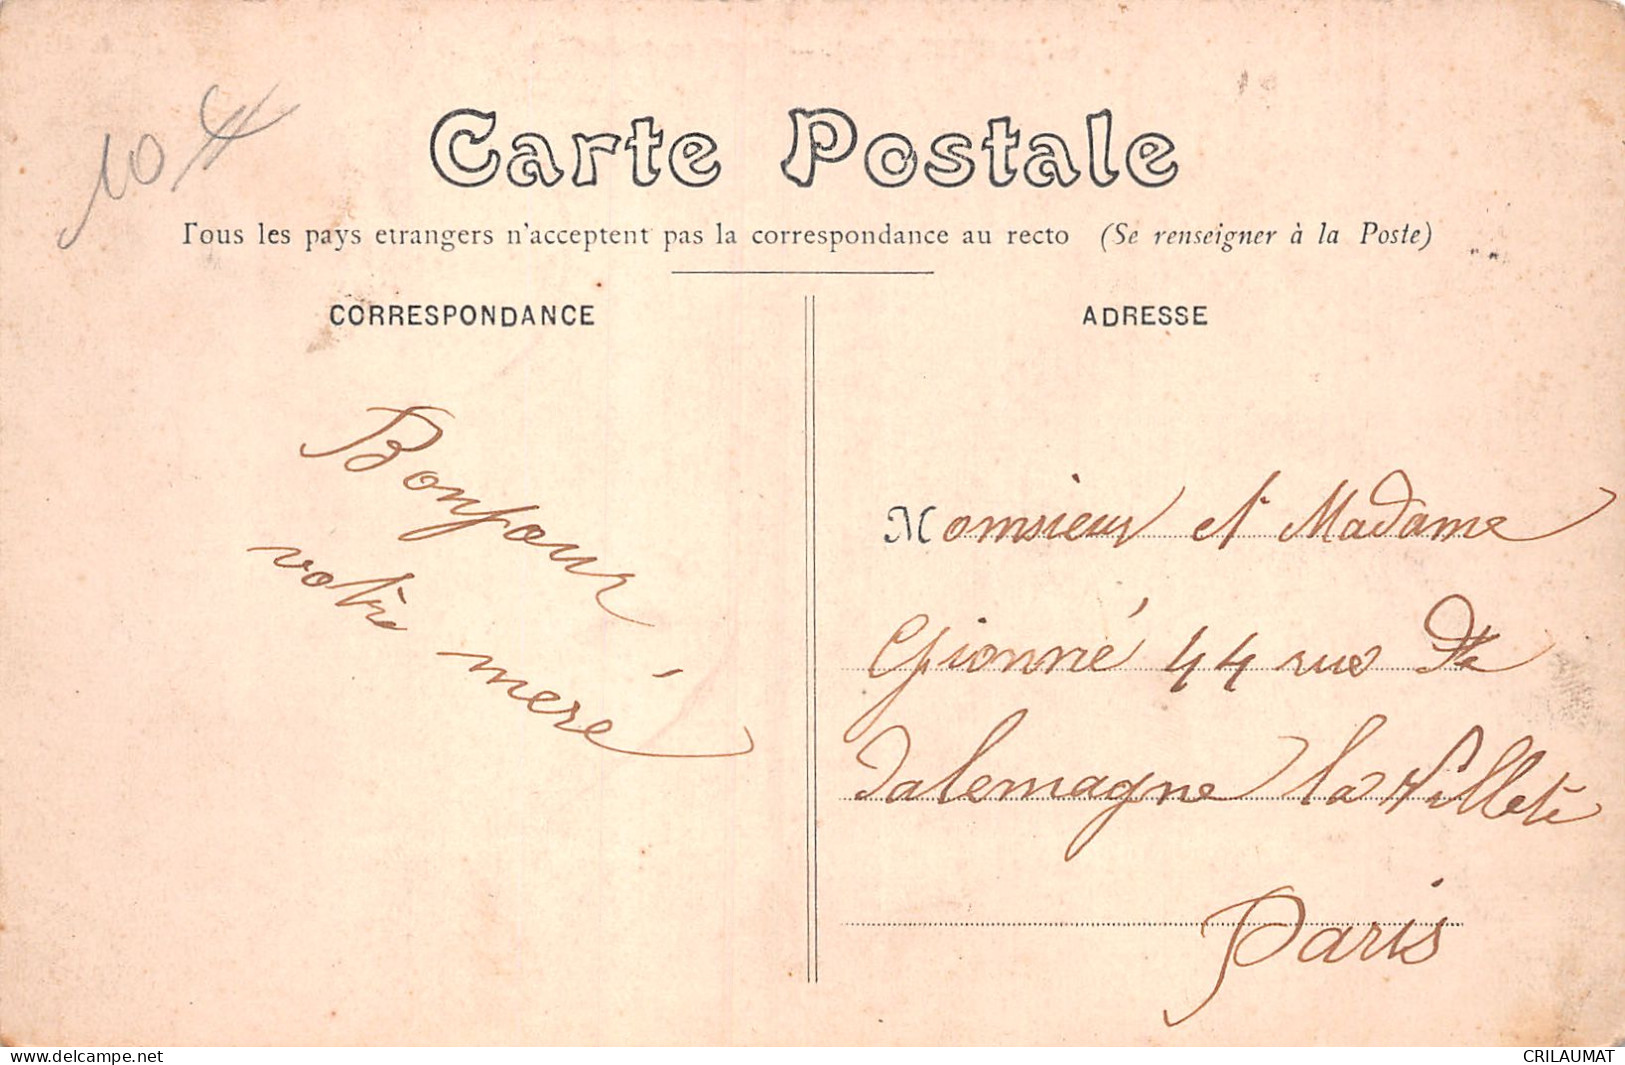 10
Carte Postale
Tous les pays etrangers n'acceptent pas la correspondance au recto (Se renseigner à la Poste)
CORRESPONDANCE
Bonjour
votre meré
ADRESSE
Monsieur et Madame
44 rue
Dalemagne la Villete
Paris
www.delcampe.net
CRILAUMAT